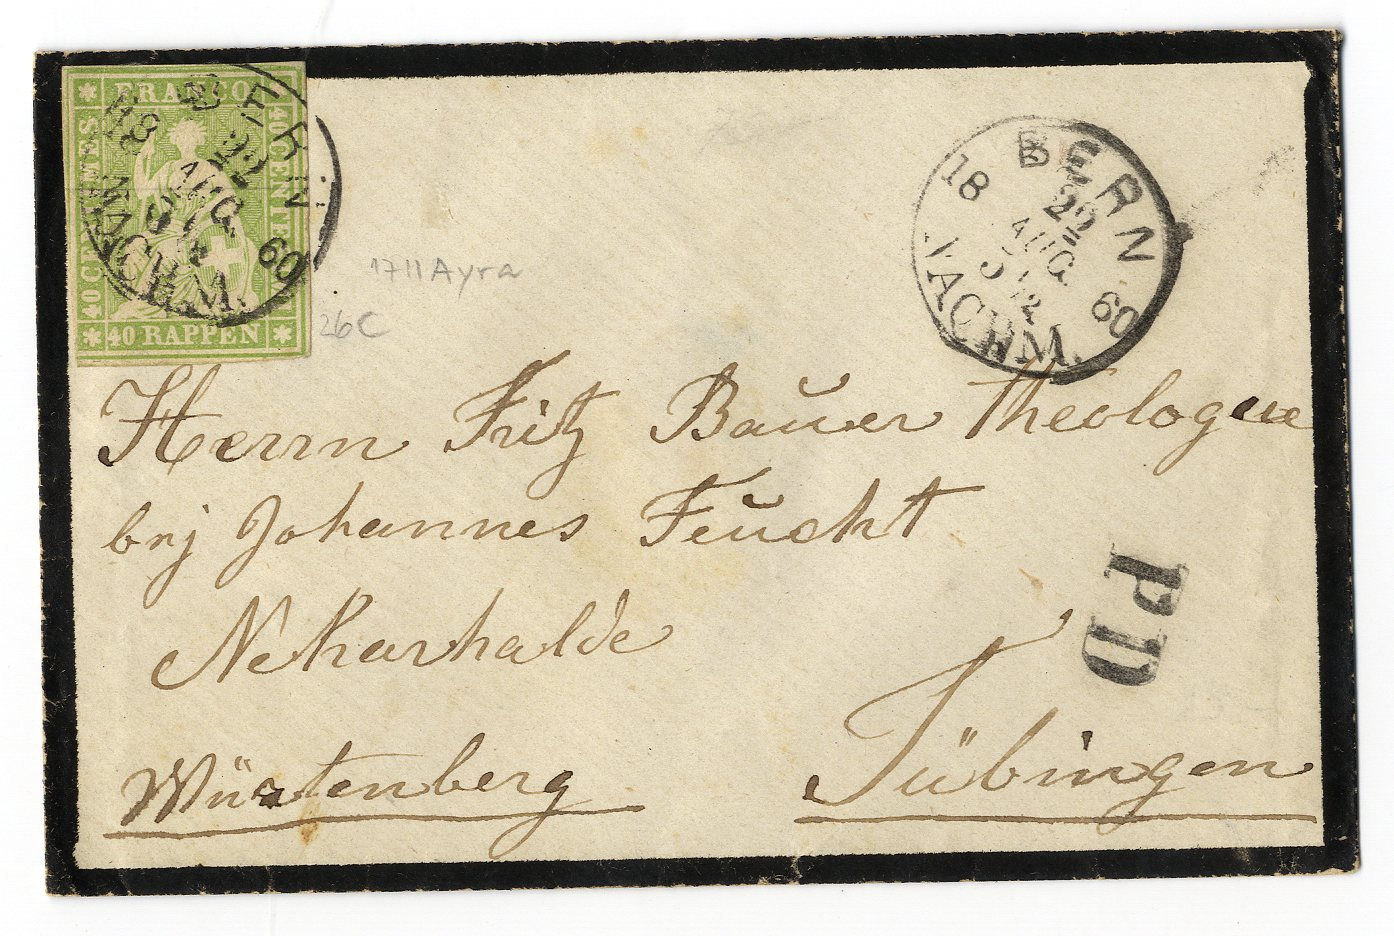 FRANCO
40 CENTES
40 RAPPEN
BERN
18 22 60
AUG
NACHM.
BERN
18 22 60
AUG.
NACHM.
1711 Ayra
26C
Herrn Fritz Bauer Theologen
bej Johannes Feucht
PD
Nekarhalde
Würtenberg Tübingen